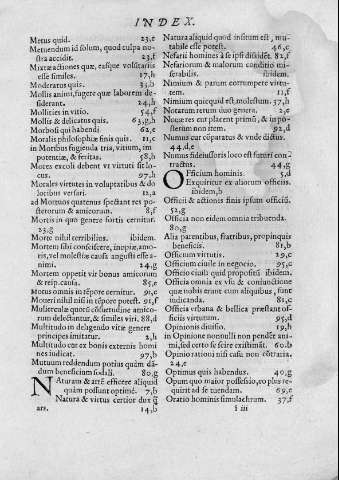 INDEX.
Metus quid. 23,e
Metuendum id solum, quod culpa no-
stra accidit. 23,f
Mixtæ actiones quæ, easque voluntarias
esse similes. 17,h
Moderatus quis. 35,b
Mollis animi, fugere quæ laborem de-
siderant. 24,h
Mollities in vitio. 54,f
Mollis & delicatus quis. 63,g,h
Morbosi qui habendi 62,e
Moralis philosophiæ finis quis. 11,c
in Moribus fugienda tria, vitium, im
potentiæ, & feritas. 58,h
Mores excoli debent vt virtuti sit lo-
cus. 97,h
Morales virtutes in voluptatibus & do
loribus versari. 12,a
ad Mortuos quatenus spectant res po
sterorum & amicorum. 8,f
Mortis in quo genere fortis cernitur.
23,g
Morte nihil terribilius. ibidem.
Mortem sibi consciscere, inopiæ, amo-
ris, vel molestiæ causa angusti esse a-
nimi. 24,g
Mortem oppetit vir bonus amicorum
& reip. causa. 85,e
Motus omnis in tēpore cernitur. 91,e
Moueri nihil nisi in tēpore potest. 91,f
Mulierculæ quorū cōsuetudine amico-
rum delectantur, & similes viri. 88,d
Multitudo in delagendo vitæ genere
principes imitatur. 2,h
Multitudo cur ex bonis externis homi
nes iudicat. 97,b
Mutuum reddendum potius quàm dā-
dum beneficium sodali. 80,g
Naturam & artē efficere aliquid
quàm possunt optimè. 7,b
Natura & virtus certior duæ q̃
ars. 14,b
Natura aliquid quod insitum est, mu-
tabile esse potest. 46,c
Nefarii homines à se ipsi dissidēt. 82,f
Nefariorum & malorum conditio mi-
serabilis. ibidem.
Nimium & parum corrumpere virtu-
tem. 11,f
Nimium quicquid est, molestum. 37,h
Notarum rerum duo genera. 2,e
Nouæ res cur placent primū, & in po-
sterum non item. 92,d
Numus cur cōparatus & vnde dictus.
44,d,e
Numus fideiussoris loco est futuri con-
tractus. 44,g
Officium hominis. 5,d
Exquiritur ex aliorum officiis.
ibidem,b
Officii & actionis finis ipsum officiū.
52,g
Officia non eidem omnia tribuenda.
80,g
Alia parentibus, fratribus, propinquis
beneficiis. 81,b
Officium virtutis. 29,c
Officium ciuile in negocio. 95,c
Officio ciuili quid propositū ibidem.
Officia omnia ex vsu & coniunctione
quæ nobis erunt cum aliquibus, sunt
iudicanda. 81,c
Officia vrbana & bellica præstant of-
ficiis virtutum. 95,d
Opinionis diuisio. 19,h
in Opinione nonulli non pendēt ani-
mi, sed certo se scire existimāt. 60.b
Opinio rationi nisi casu non cōtraria.
24,e
Optimus quis habendus. 40,g
Opum quo maior possessio, eo plus re-
quirit ad se tuendam. 69,e
Oratio hominis simulachrum. 37,f
§ iii